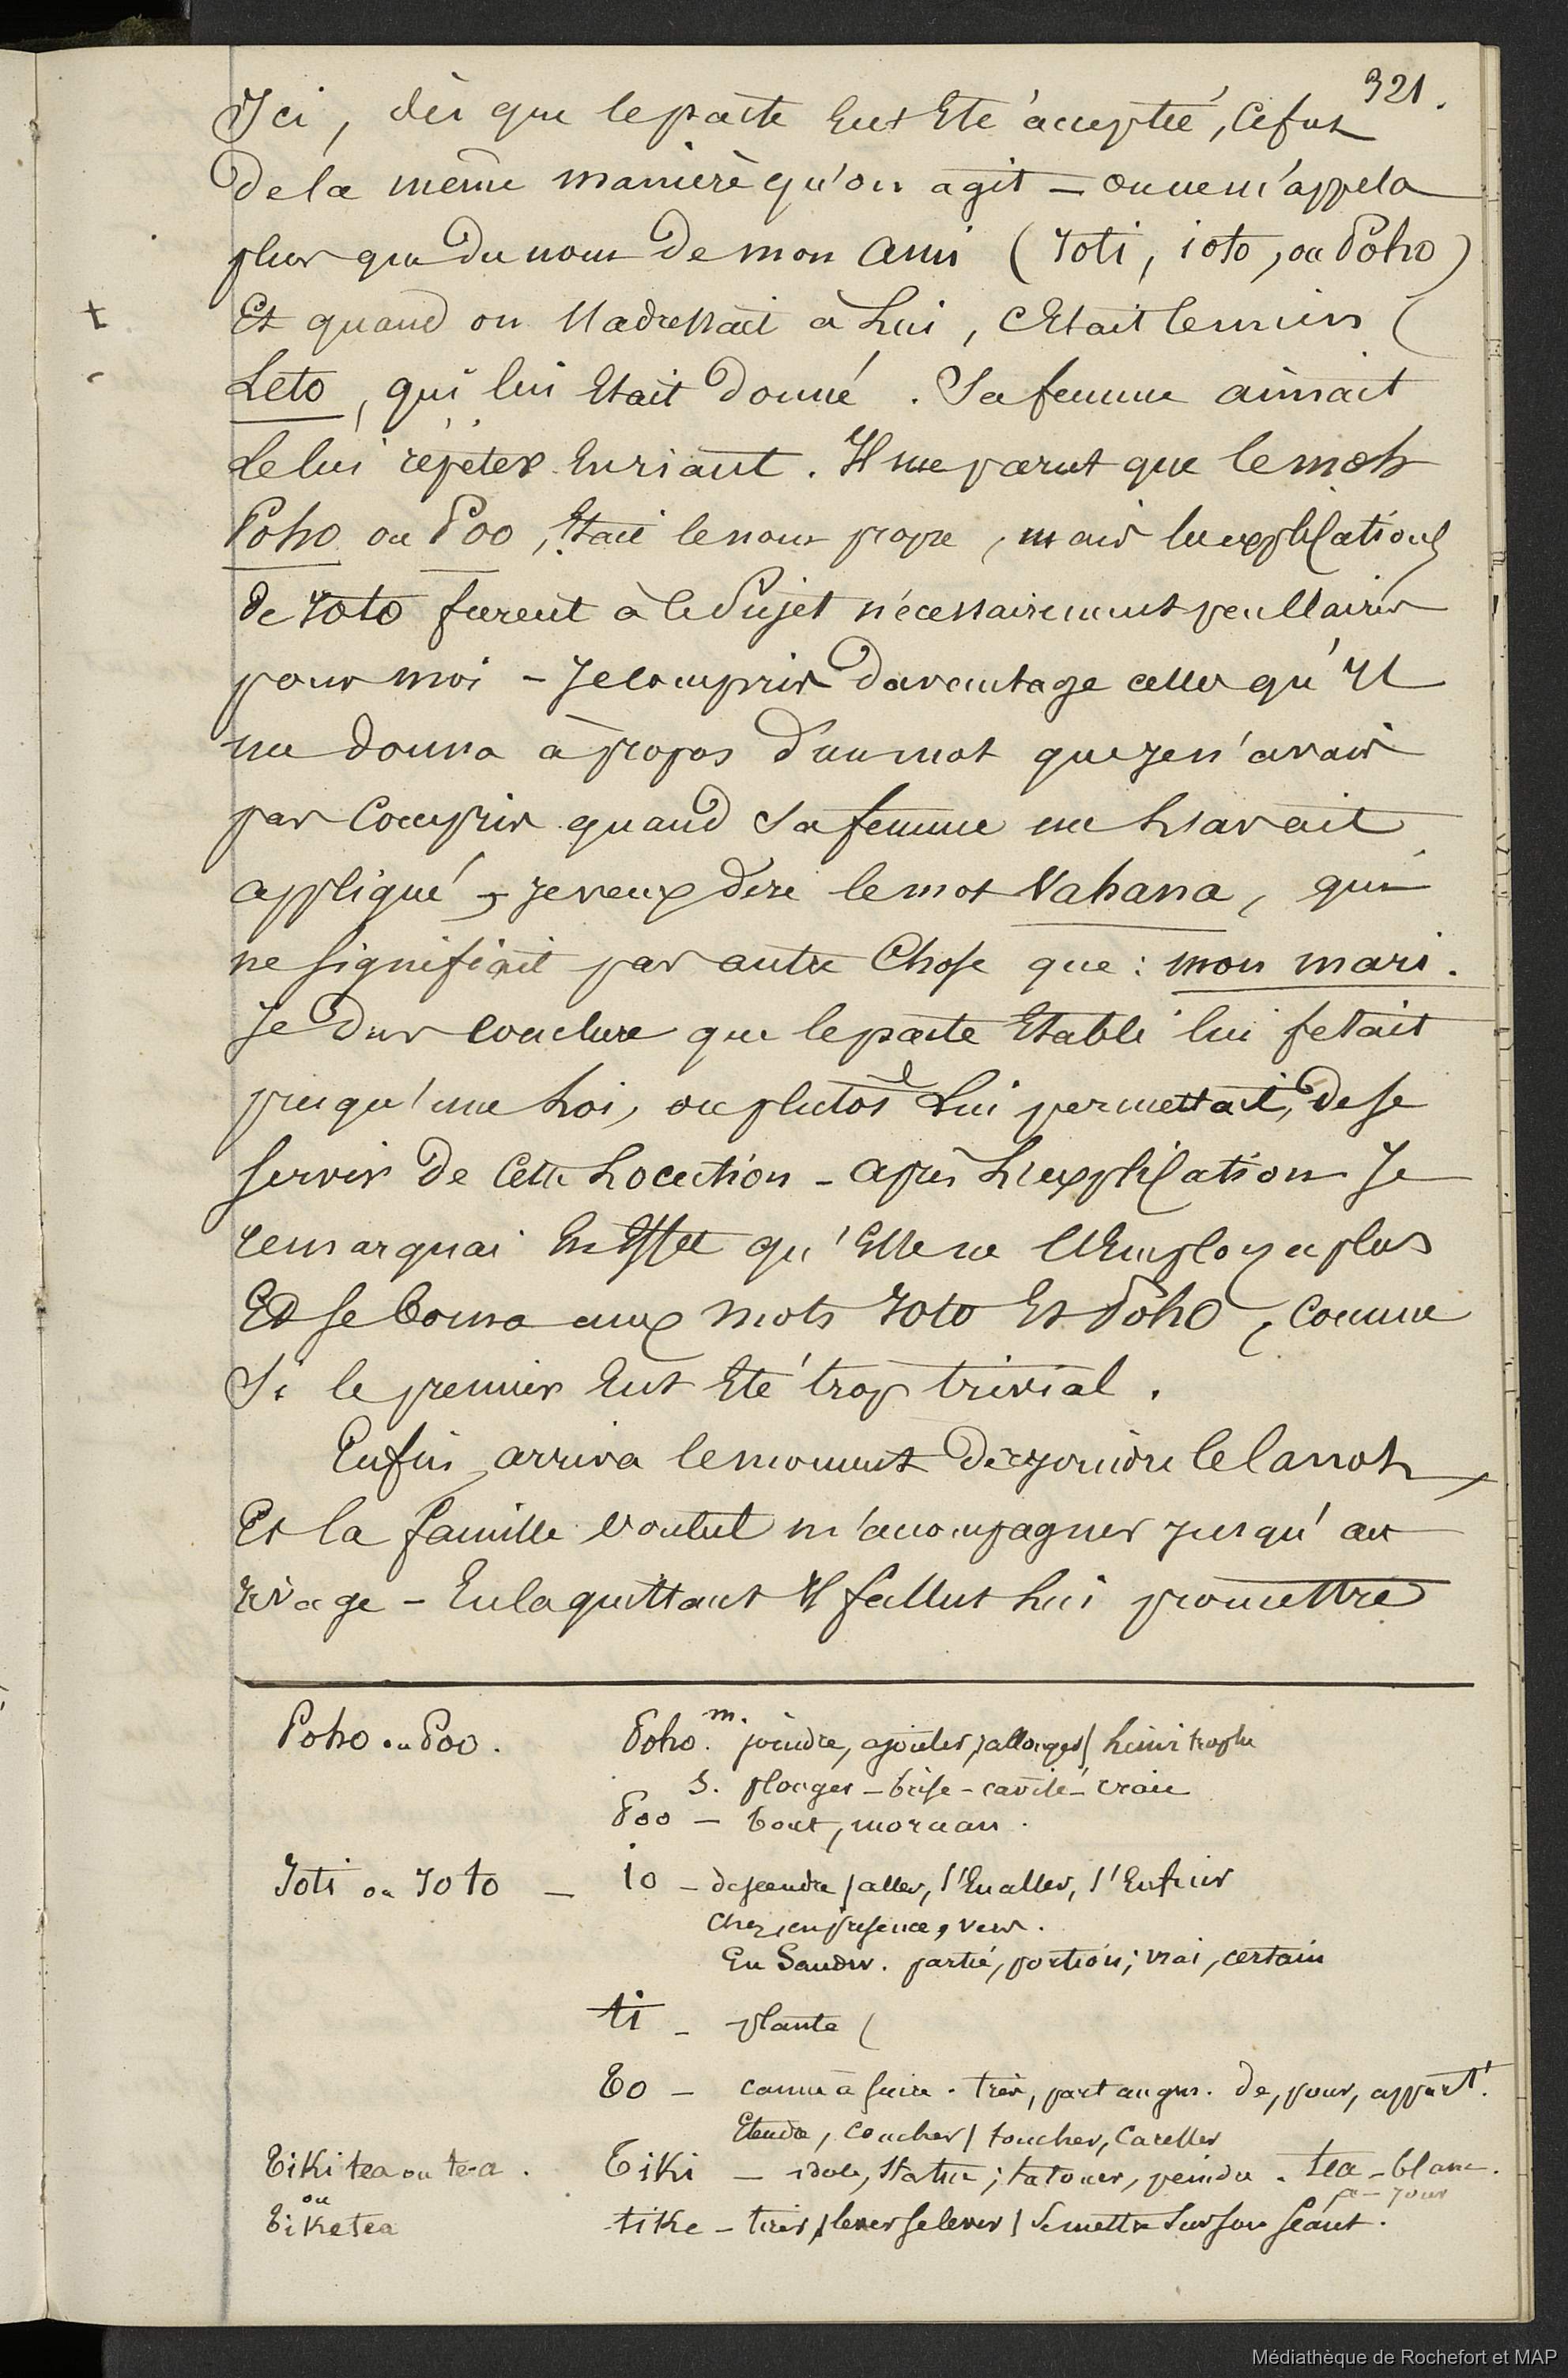 321.
Ici, dès que le pacte eut été accepté, ce fut
de la même manière qu'on agit – on ne m'appela
plus que du nom de mon ami (Ioti, ioto, ou Poho)
Et quand on s'adressait à Lui, c'était le mien (
Leto, qui lui était donné. Sa femme aimait
à le lui répéter en riant. Il me parut que le mot
Poho ou Poo, était le nom propre, mais les explications
de Ioto furent à ce sujet nécessairement peu claires
pour moi – Je compris davantage celles qu'Il
me donna à propos d'un mot que je n'avais
pas compris quand sa femme me l'avait
appliqué, je veux dire le mot Vahana, qui
ne signifiait pas autre chose que : mon mari.
Je dus conclure que le pacte établi lui fesait
presqu'une Loi, ou plutôt Lui permettait, de se
servir de cette Locution – après L'explication Je
remarquai en effet qu'Elle ne l'Employa plus
Et se borna aux mots Ioto et Poho, comme
Si le premier eut été trop trivial.
Enfin arriva le moment de rejoindre le canot,
Et la famille voulut m'accompagner jusqu'au
rivage – En la quittant Il fallut Lui promettre
Poho ou Poo.
Poho. m. joindre, ajouter, rallonger / Limitrophe
S. plonger – brise – cavité – vraie
Poo – bout, morceau.
Ioti ou Ioto –
io – descendre / aller, s'En aller, s'Enfuir
chez, en présence, vers.
En Sandw. partie, portion; vrai, certain
ti – plante (
to – canne à sucre. très, part augm. de, pour, appart.
Etendre, coucher / toucher, caresser
Tiki tea ou te-a.
Tiki – idole, statue; tatouer, peindre. tea – blanc.
a – jour
ou
Tike tea
tike – tirer / lever se lever / se mettre sur son séant.
+
Médiathèque de Rochefort et MAP